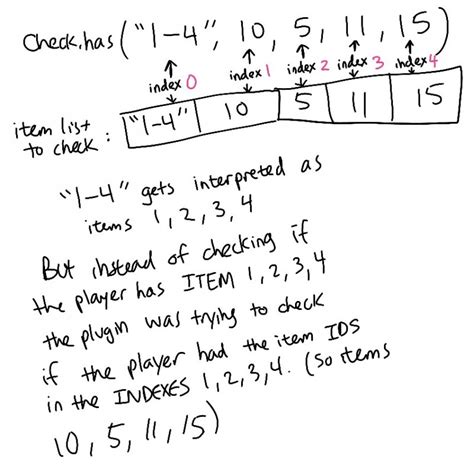 Check.has("1-4", 10, 5, 11, 15)
index 0 index 1 index 2 index 3 index 4
item list to check: "1-4" 10 5 11 15
"1-4" gets interpreted as
items 1, 2, 3, 4
But instead of checking if
the player has ITEM 1, 2, 3, 4
the plugin was trying to check
if the player had the item IDS
in the INDEXES 1, 2, 3, 4. (So items
10, 5, 11, 15)